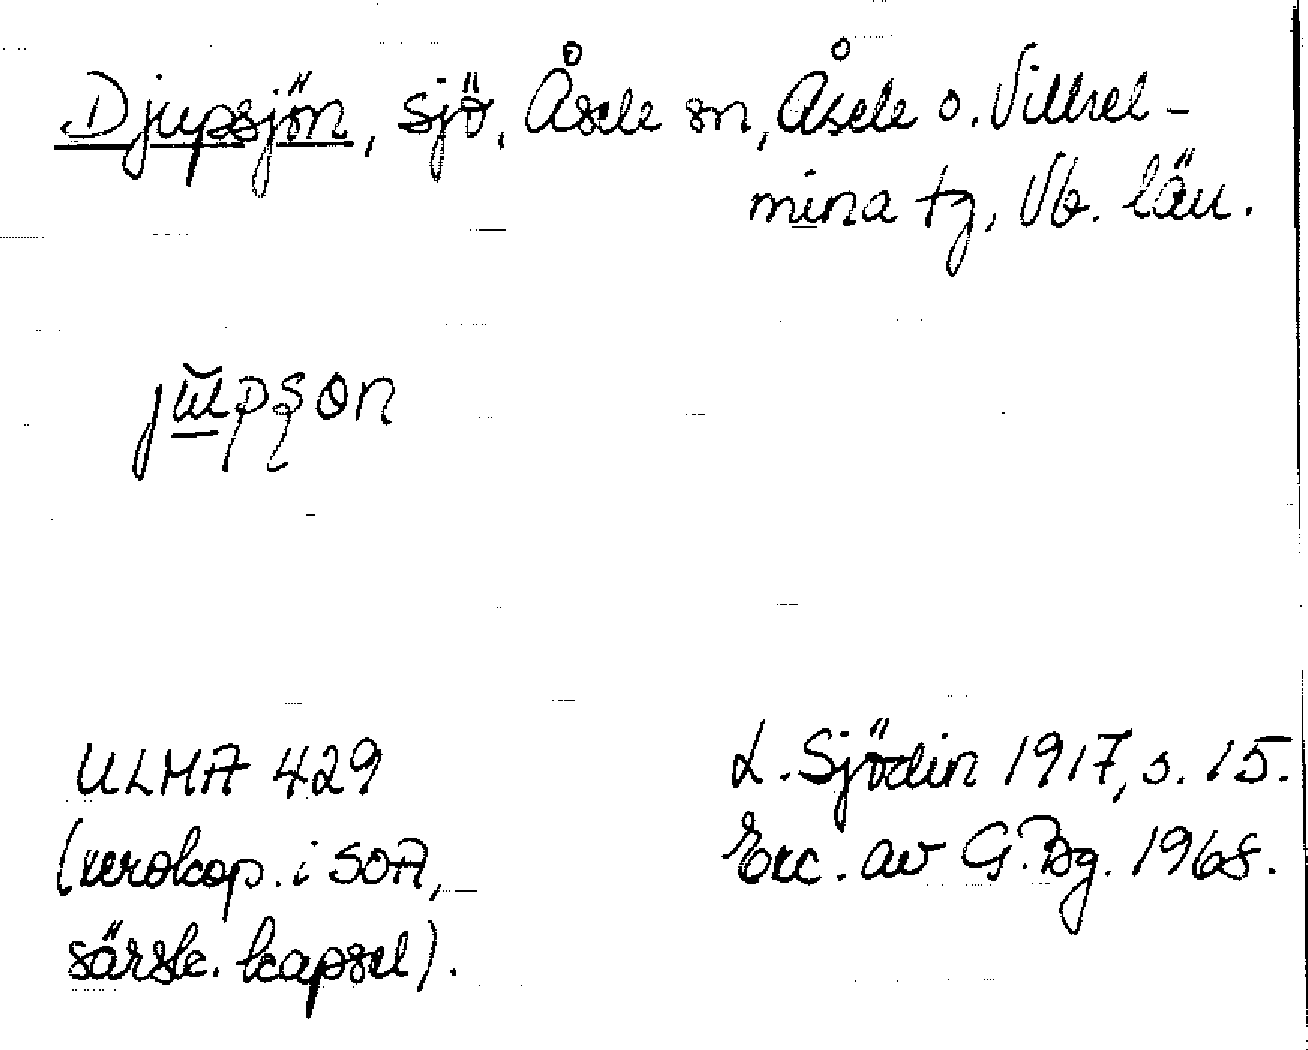 Djupsjön, sjö, Åsele sn, Åsele o. Vilhel-
mina tg, Vb. län.
ULMA 429
(xerokop. i SOA,
särsk. kapsel).
L. Sjödin 1917, s. 15.
Exc. av G. Bg. 1968.